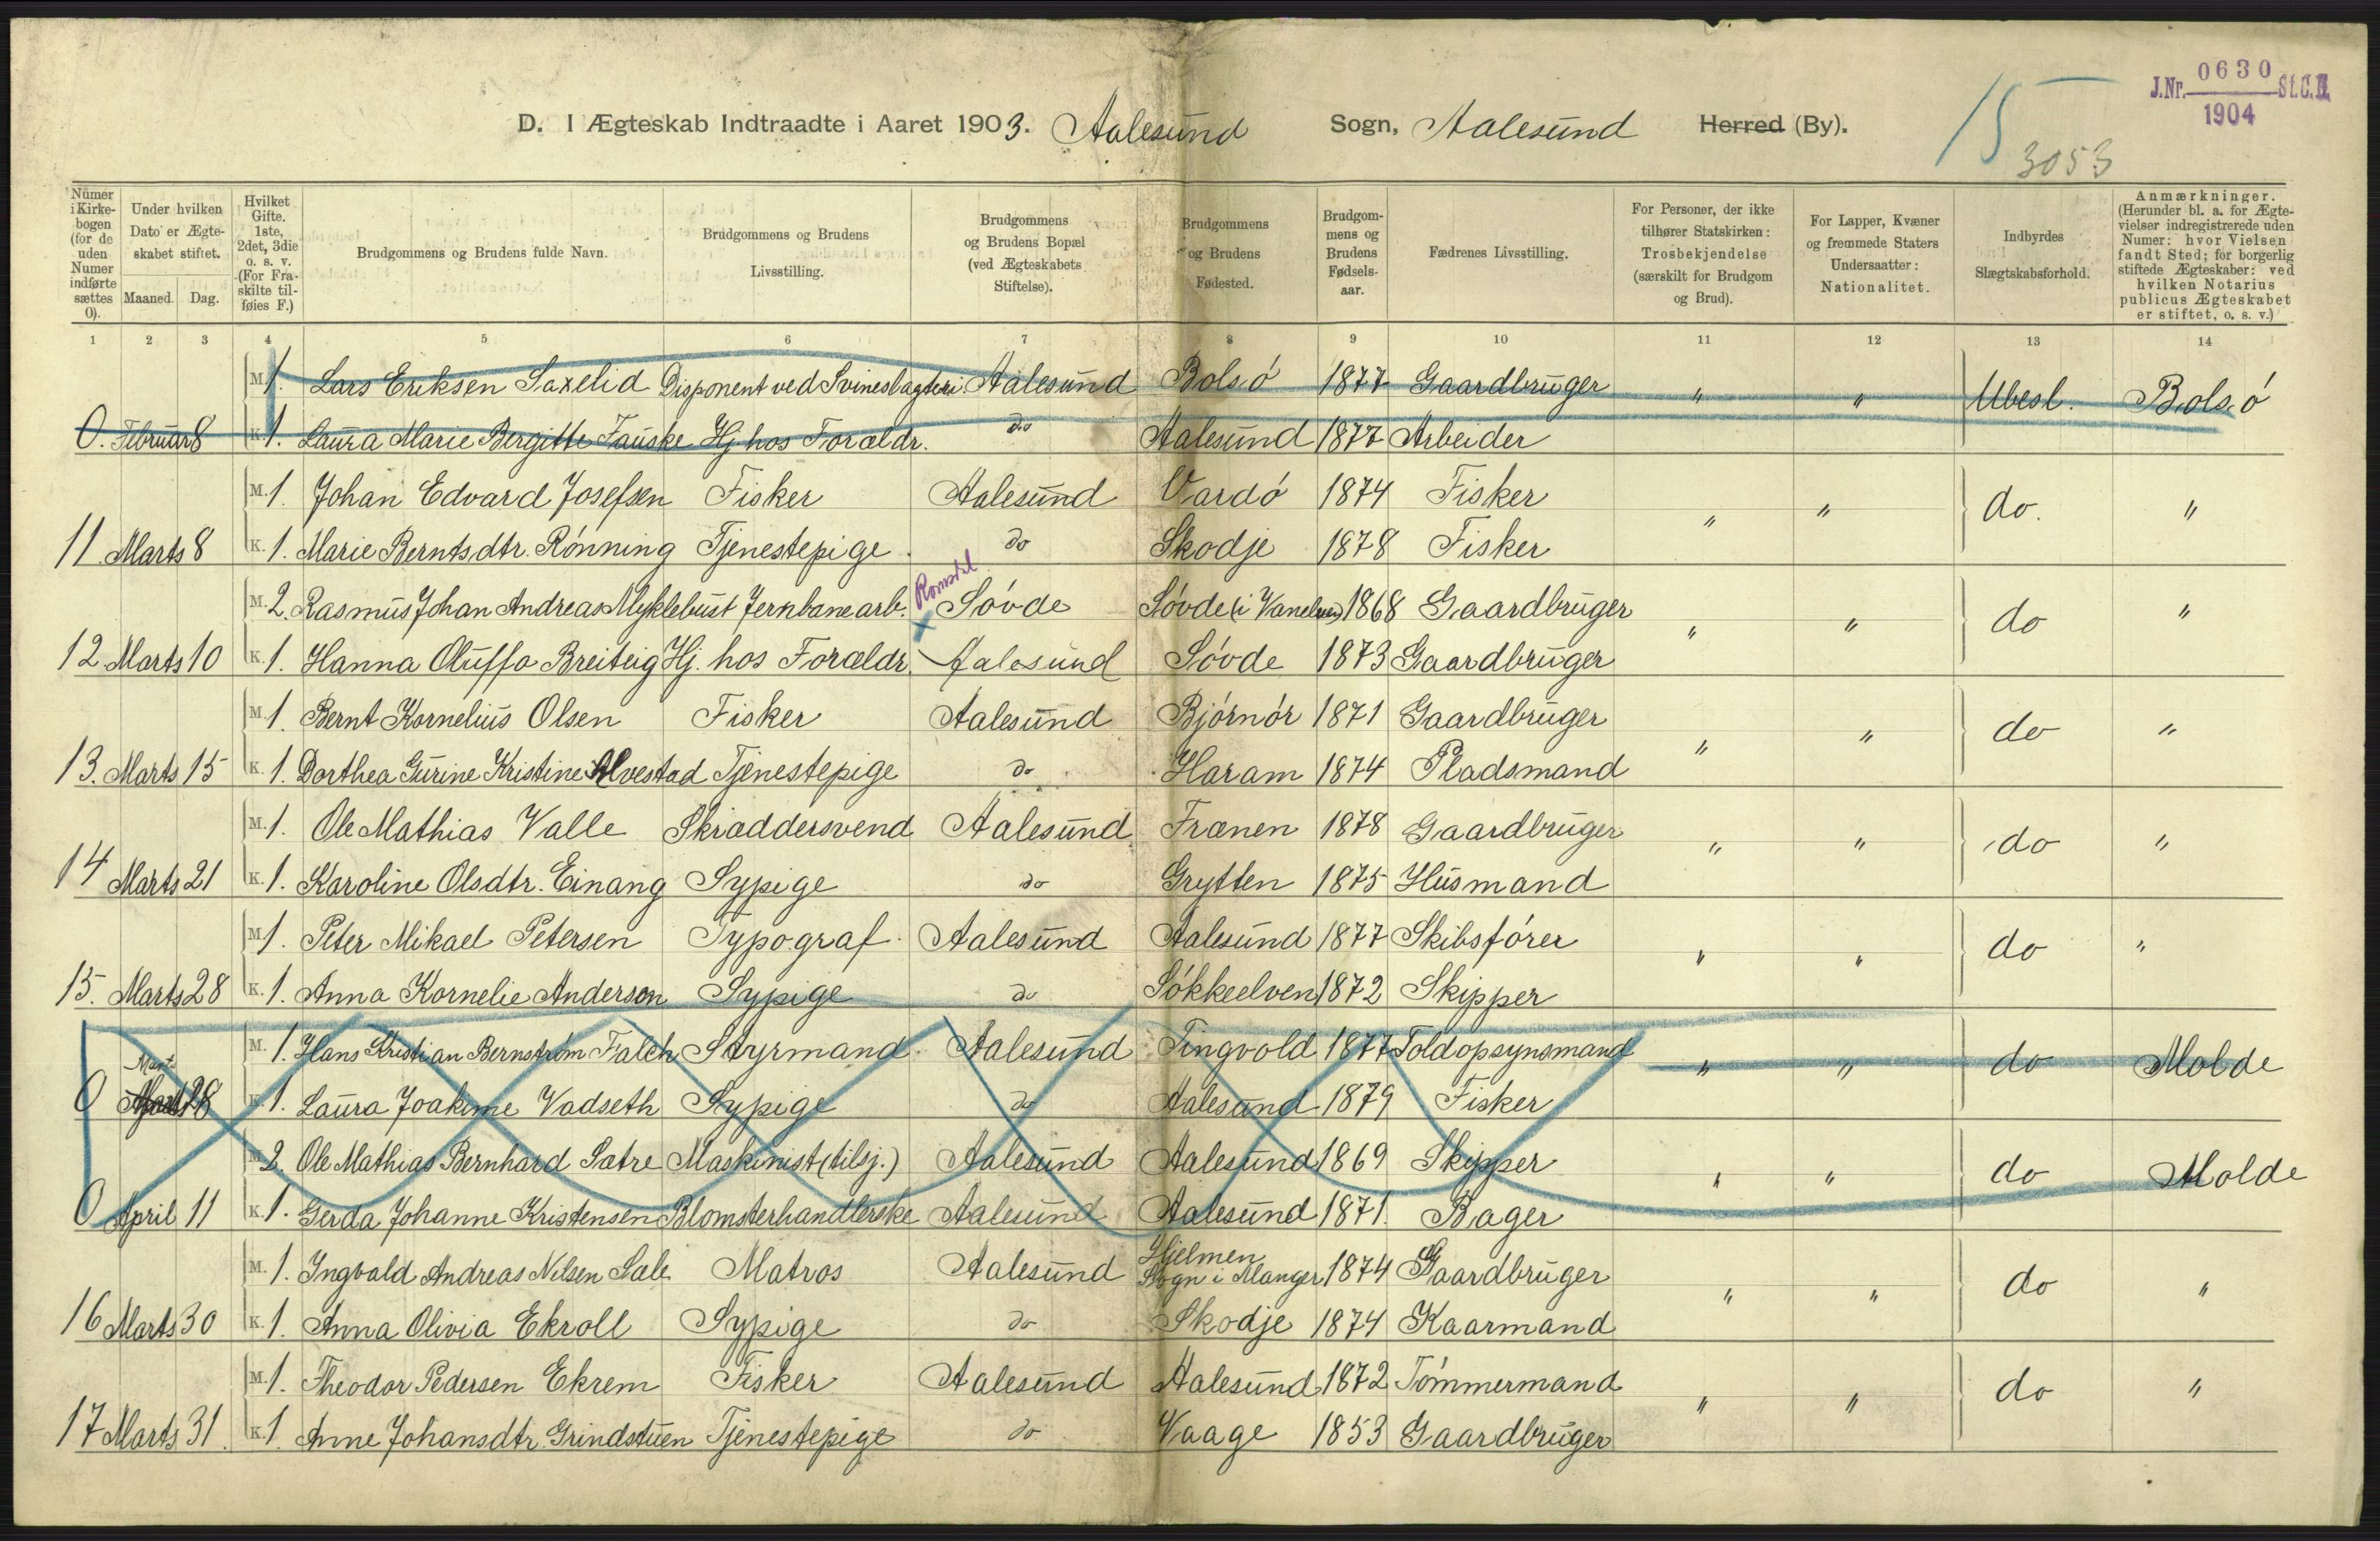 J.Nr. 0630 St.C.B.
1904
15
3053
D. I Ægteskab Indtraadte i Aaret 1903. Aalesund Sogn, Aalesund Herred (By).
Numer i Kirkebogen (for de uden Numer indførte sættes 0).
Under hvilken Dato er Ægteskabet stiftet.
Maaned. Dag.
Hvilket Gifte. 1ste, 2det, 3die o. s. v. (For Fraskilte tilføies F.)
Brudgommens og Brudens fulde Navn.
Brudgommens og Brudens Livsstilling.
Brudgommens og Brudens Bopæl (ved Ægteskabets Stiftelse).
Brudgommens og Brudens Fødested.
Brudgommens og Brudens Fødselsaar.
Fædrenes Livsstilling.
For Personer, der ikke tilhører Statskirken: Trosbekjendelse (særskilt for Brudgom og Brud).
For Lapper, Kvæner og fremmede Staters Undersaatter: Nationalitet.
Indbyrdes Slægtskabsforhold.
Anmærkninger. (Herunder bl. a. for Ægtevielser indregistrerede uden Numer: hvor Vielsen fandt Sted; for borgerlig stiftede Ægteskaber: ved hvilken Notarius publicus Ægteskabet er stiftet, o. s. v.)
1 2 3 4 5 6 7 8 9 10 11 12 13 14
M. 1. Lars Eriksen Saxelid Disponent ved Svineslagteri Aalesund Bolsó 1877 Gaardbruger " " Ubesl. Bolsó
0. Februar 8 K. 1. Laura Marie Bergitte Fauske Hj. hos Forældr. do Aalesund 1877 Arbeider
M. 1. Johan Edvard Josefsen Fisker Aalesund Vardó 1874 Fisker " " do. "
11. Marts 8 K. 1. Marie Berntsdtr. Rónning Tjenestepige do Skodje 1878 Fisker
Romsdal
M. 2. Rasmus Johan Andreas Myklebust Jernbanearb. x Sóvde Sóvde (i Vanelven) 1868 Gaardbruger " " do "
12 Marts 10 K. 1. Hanna Oluffa Breiteig Hj. hos Forældr. Aalesund Sóvde 1873 Gaardbruger
M. 1. Bernt Kornelius Olsen Fisker Aalesund Bjórnór 1871 Gaardbruger " " do "
13. Marts 15 K. 1. Dorthea Gurine Kristine Alvestad Tjenestepige do Haram 1874 Pladsmand
M. 1. Ole Mathias Valle Skræddersvend Aalesund Frænen 1878 Gaardbruger " " do "
14 Marts 21 K. 1. Karoline Olsdtr. Einang Sypige do Grytten 1875 Husmand
M. 1. Peter Mikael Petersen Typograf Aalesund Aalesund 1877 Skibsfórer " " do "
15. Marts 28 K. 1. Anna Kornelie Anderson Sypige do Sókkelven 1872 Skipper
M. 1. Hans Kristian Bernstrøm Falch Styrmand Aalesund Tingvold 1877 Toldopsynsmand " " do Molde
Mart.
0 28 K. 1. Laura Joakime Vadseth Sypige do Aalesund 1879 Fisker
M. 2. Ole Mathias Bernhard Sætre Maskinist (tilsj.) Aalesund Aalesund 1869 Skipper " " do Molde
0 April 11 K. 1. Gerda Johanne Kristensen Blomsterhandlerske Aalesund Aalesund 1871. Bager
M. 1. Ingvald Andreas Nilsen Sæle Matros Aalesund Hjelmen Sogn i Manger 1874 Gaardbruger " " do "
16 Marts 30 K. 1. Anna Olivia Ekroll Sypige do Skodje 1874 Kaarmand
M. 1. Theodor Pedersen Ekrem Fisker Aalesund Aalesund 1872 Tómmermand " " do "
17 Marts 31. K. 1 Anne Johansdtr. Grindstuen Tjenestepige do Vaage 1853 Gaardbruger